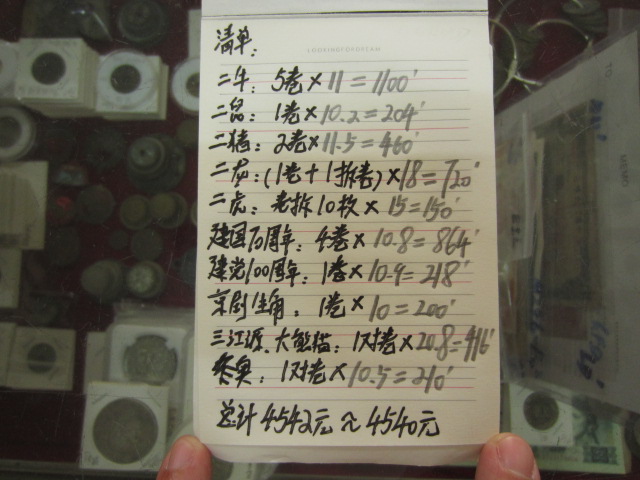 LOOKINGFORDREAM
清单:
二牛: 5卷×11=1100'
二鼠: 1卷×10.2=204'
二猪: 2卷×11.5=460'
二龙: (1卷+1拆卷)×18=720'
二虎: 老拆10枚×15=150'
建国70周年: 4卷×10.8=864'
建党100周年: 1卷×10.9=218'
京剧生角: 1卷×10=200'
三江源、大熊猫: 1对卷×20.8=416'
冬奥: 1对卷×10.5=210'
总计4542元≈4540元